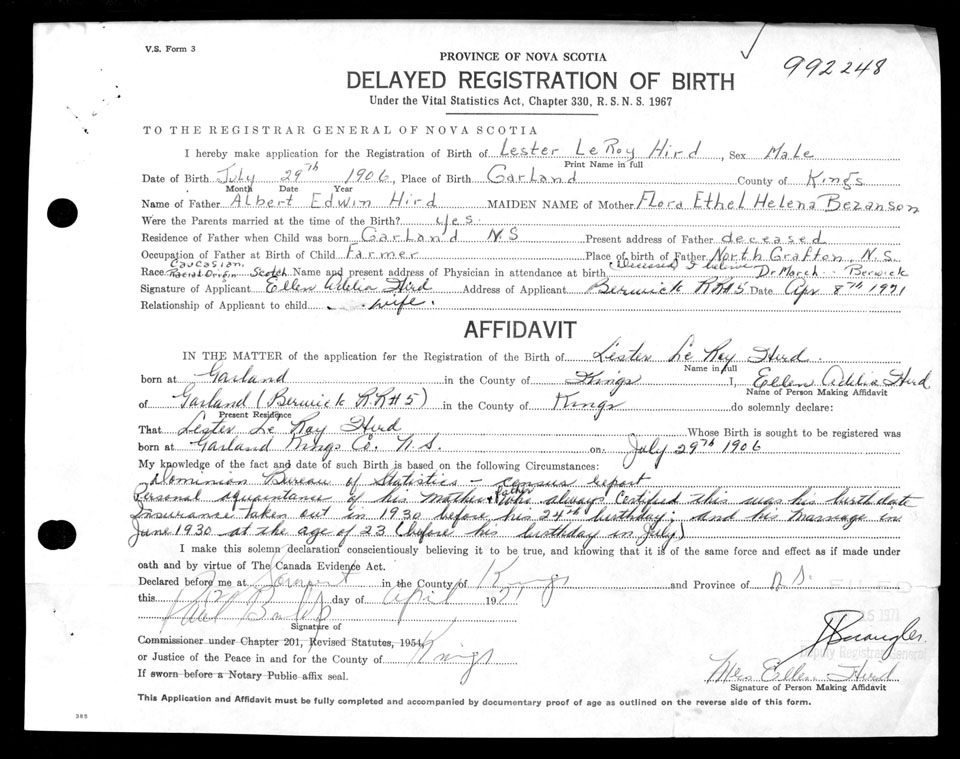 V.S. Form 3
992248
PROVINCE OF NOVA SCOTIA
DELAYED REGISTRATION OF BIRTH
Under the Vital Statistics Act, Chapter 330, R.S.N.S. 1967
TO THE REGISTRAR GENERAL OF NOVA SCOTIA
I hereby make application for the Registration of Birth of Lester LeRoy Hird, Sex Male
Print Name in full
Date of Birth July 29th 1906, Place of Birth Garland County of Kings
Month Date Year
Name of Father Albert Edwin Hird MAIDEN NAME of Mother Flora Ethel Helena Bezanson
Were the Parents married at the time of the Birth? yes.
Residence of Father when Child was born Garland N.S Present address of Father deceased
Occupation of Father at Birth of Child Farmer Place of birth of Father North Grafton, N.S.
Caucasian
Race Racial Origin Scotch Name and present address of Physician in attendance at birth (deceased I believe) Dr March - Berwick
Signature of Applicant Ellen Adelia Hird Address of Applicant Berwick RR#5 Date Apr 8th 1971
Relationship of Applicant to child wife.
AFFIDAVIT
IN THE MATTER of the application for the Registration of the Birth of Lester Le Roy Hird.
Name in full
born at Garland in the County of Kings I, Ellen Adelia Hird
Name of Person Making Affidavit
of Garland (Berwick R.R#5) in the County of Kings do solemnly declare:
Present Residence
That Lester Le Roy Hird Whose Birth is sought to be registered was
born at Garland Kings Co. N.S. on July 29th 1906
My knowledge of the fact and date of such Birth is based on the following Circumstances:
Dominion Bureau of Statistics - census report
Personal aquaintance of his Mother & father who always Certified this was his birthdate
Insurance taken out in 1930 before his 24th birthday; and his Marriage in
June 1930 at the age of 23 (before his birthday in July)
I make this solemn declaration conscientiously believing it to be true, and knowing that it is of the same force and effect as if made under
oath and by virtue of The Canada Evidence Act.
Declared before me at Somerset in the County of Kings and Province of N.S.
this day of April 1971
Signature of
Commissioner under Chapter 201, Revised Statutes, 1954,
or Justice of the Peace in and for the County of Kings
If sworn before a Notary Public affix seal.
Deputy Registrar General
Mrs Ellen Hird
Signature of Person Making Affidavit
This Application and Affidavit must be fully completed and accompanied by documentary proof of age as outlined on the reverse side of this form.
385